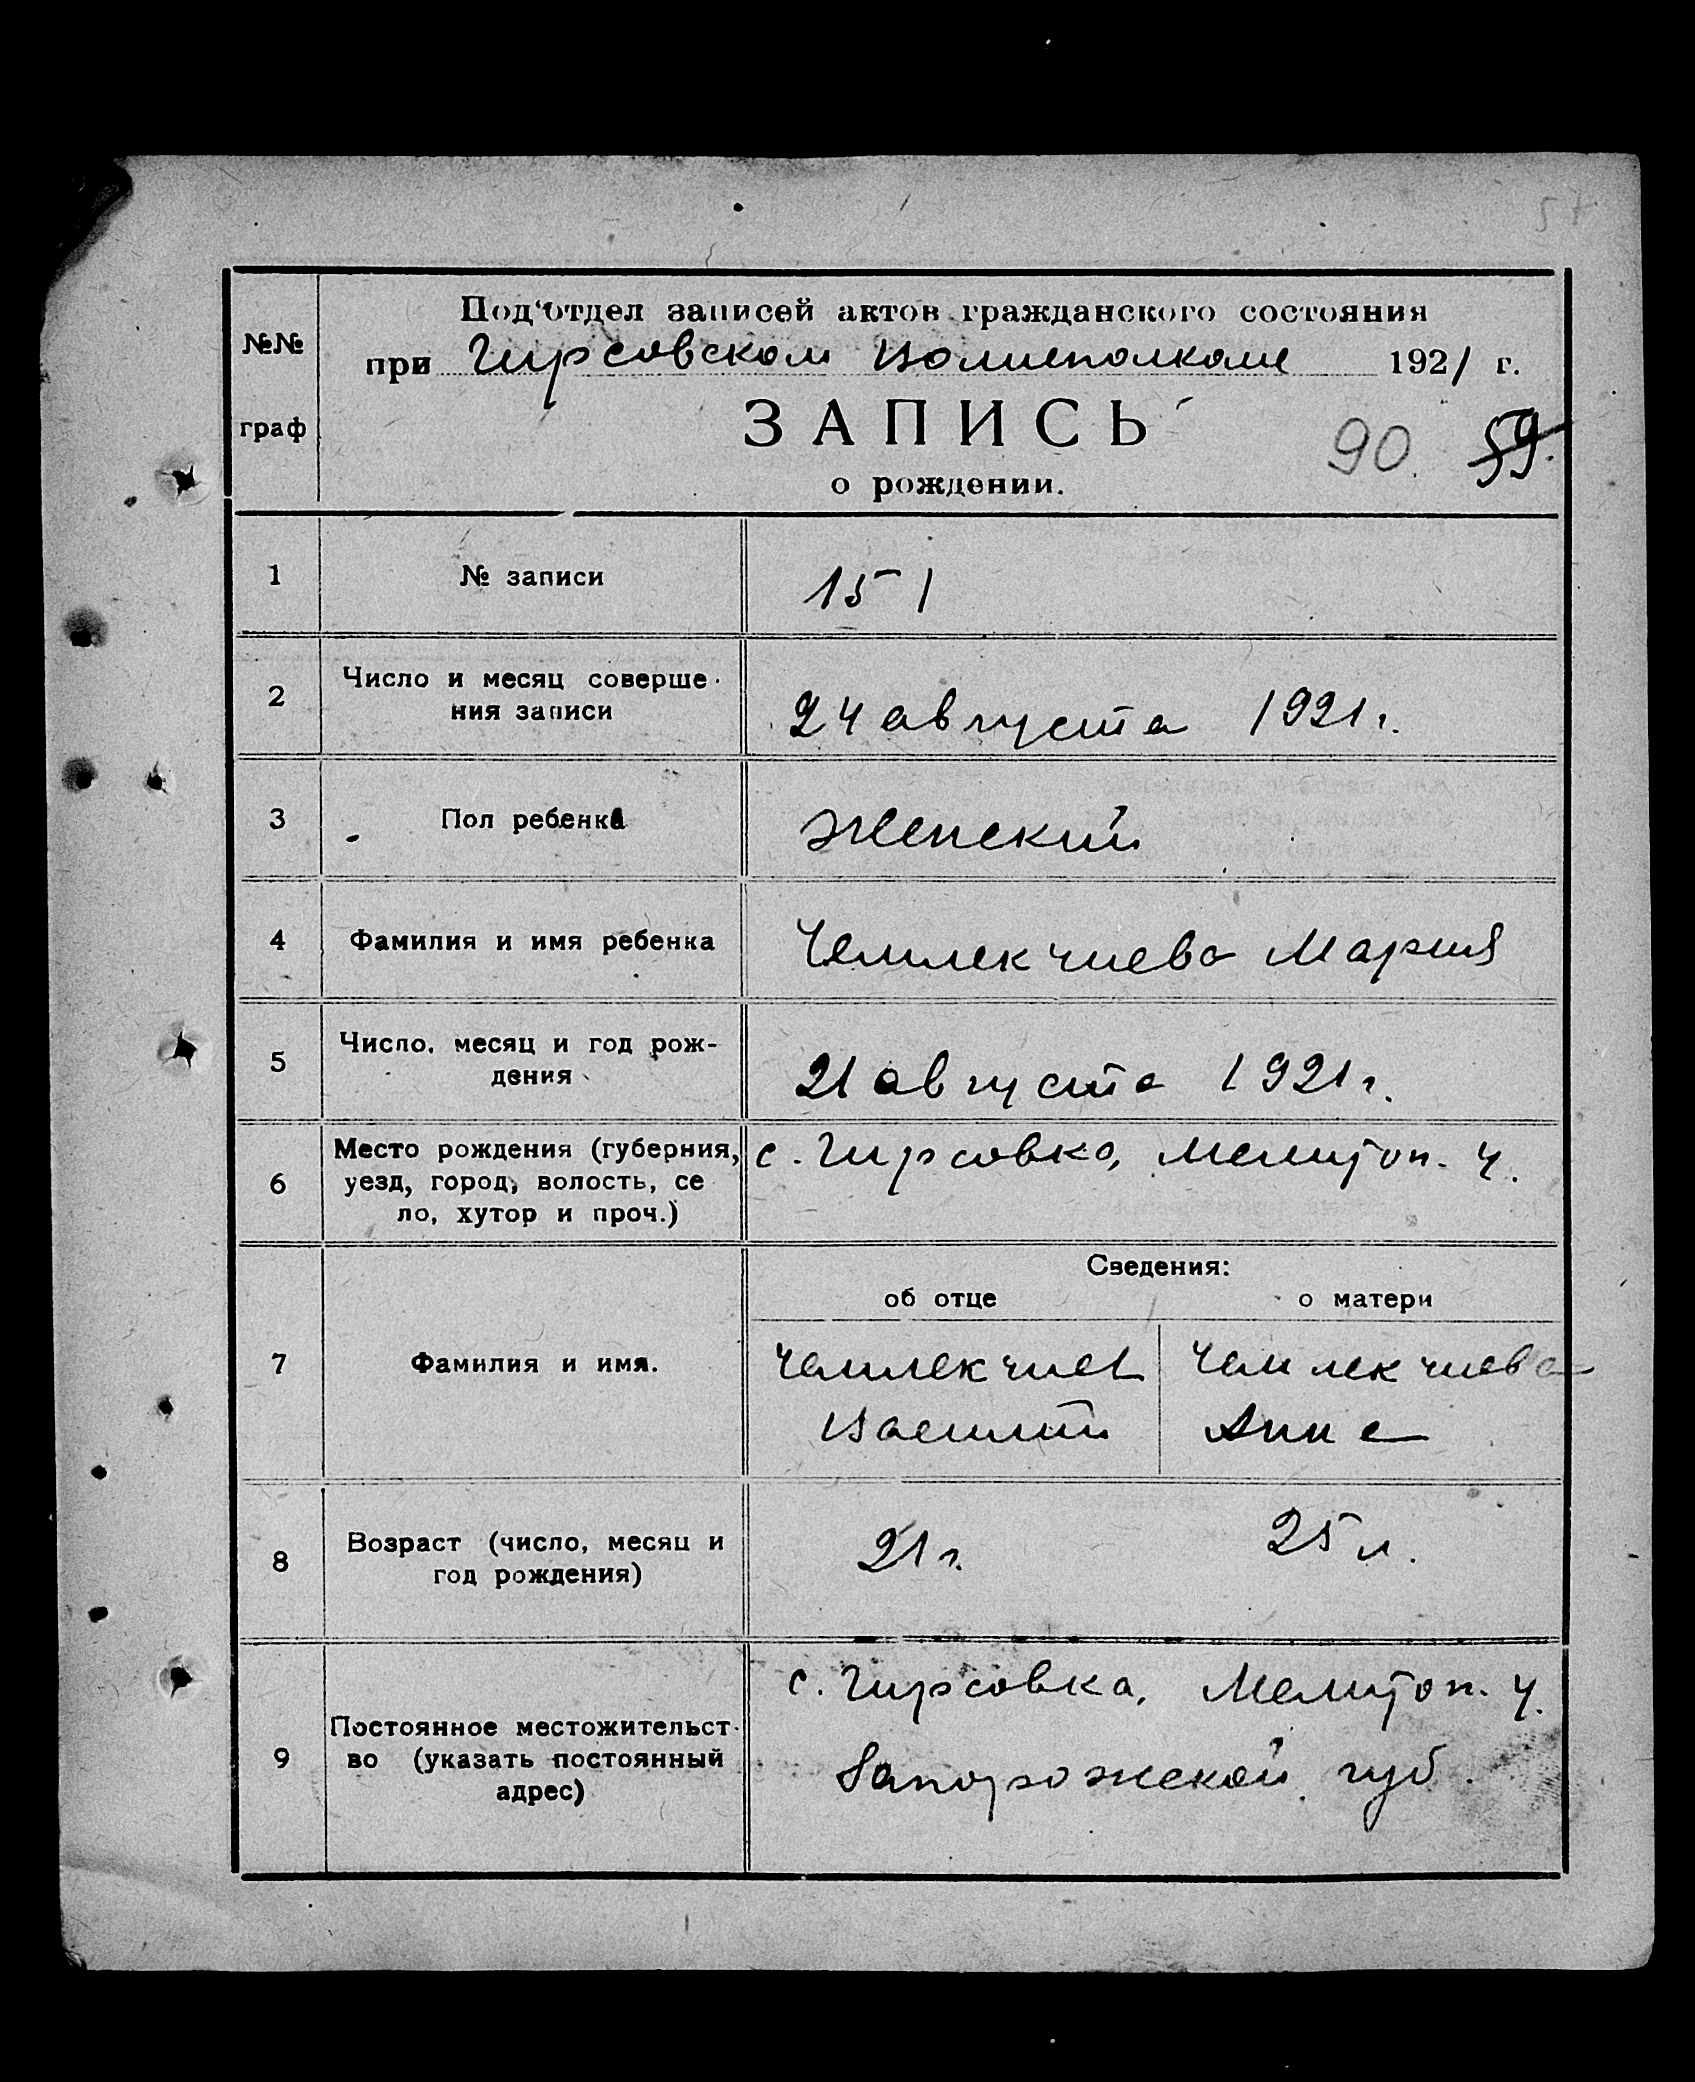 №№
граф
Под'отдел записей актов гражданского состояния
при Гирсовском Волисполкоме 1921 г.
ЗАПИСЬ
90. 59.
о рождении.
1 № записи 151
2 Число и месяц соверше-
ния записи
24 августа 1921 г.
3 Пол ребенка Женский
4 Фамилия и имя ребенка Чемлекчиева Мария
5 Число, месяц и год рож-
дения
21 августа 1921 г.
6 Место рождения (губерния,
уезд, город, волость, се
ло, хутор и проч.)
с. Гирсовка, Мелитоп. у.
Сведения:
об отце о матери
7 Фамилия и имя.
Чемлекчиев Чемлекчиева
Василий Анна
8 Возраст (число, месяц и
год рождения)
21 г. 25 л.
9 Постоянное местожительст-
во (указать постоянный
адрес)
с. Гирсовка, Мелитоп. у.
Запорожской губ.